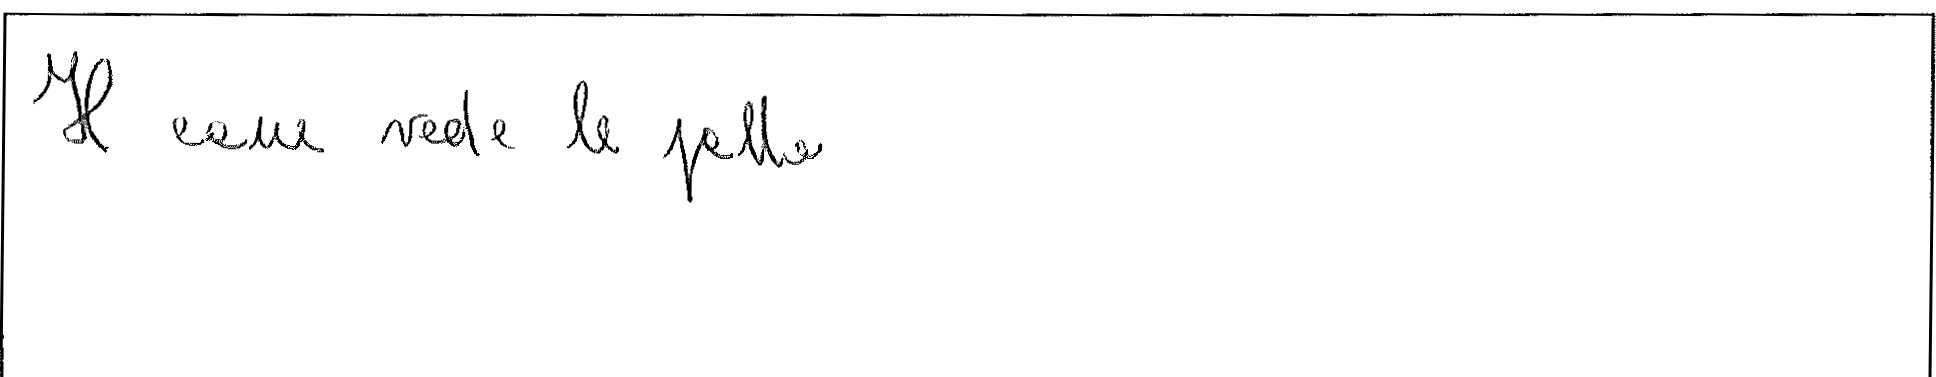 Il cane vede la palla